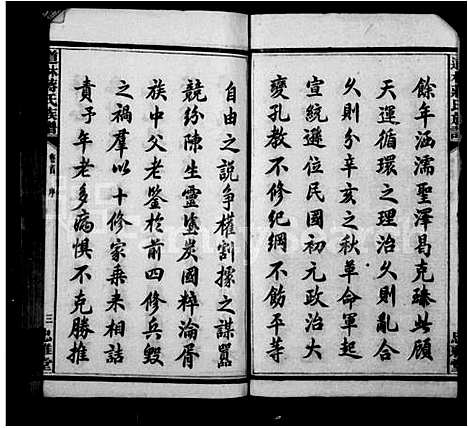 餘年涵濡聖澤曷克臻此顧
天運循環之理治久則亂合
久則分辛亥之秋革命軍起
宣統遜位民國初元政治大
變孔教不修紀綱不飭平等
自由之說爭權割據之謀囂
競紛陳生靈塗炭國粹淪胥
族中父老鑒於前四修兵燹
之禍羣以十修家乘来相詰
責予年老多病惧不克勝推
氏族譜
卷首 序
三